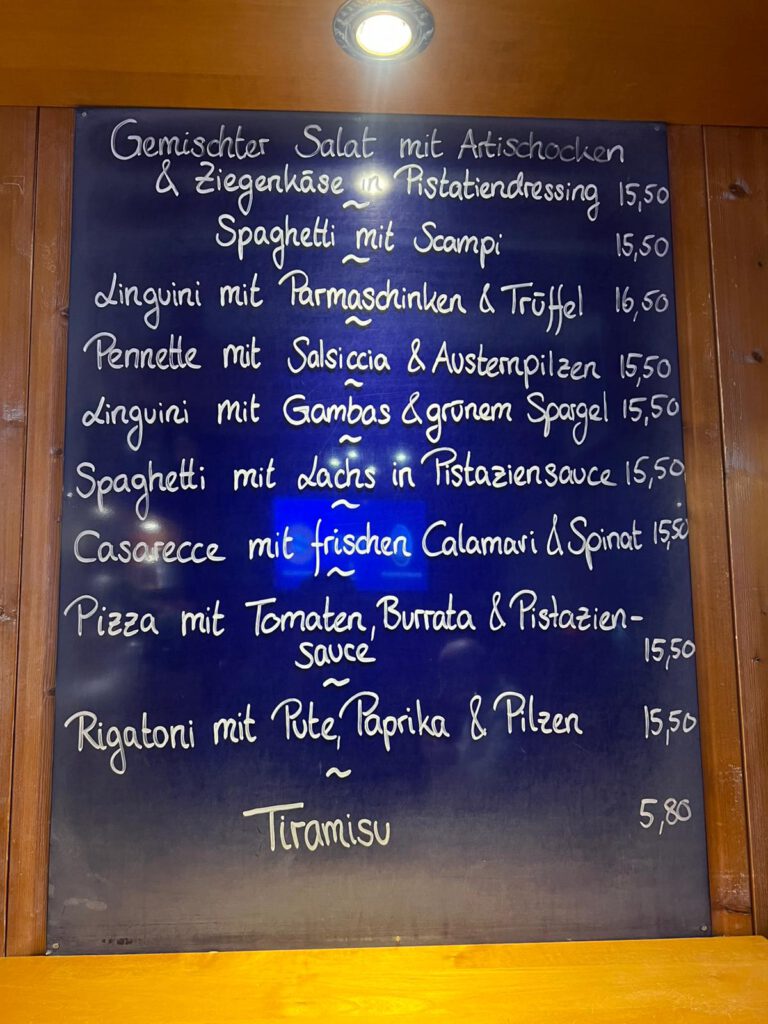 Gemischter Salat mit Artischocken
& Ziegenkäse in Pistatiendressing 15,50
~
Spaghetti mit Scampi 15,50
~
Linguini mit Parmaschinken & Trüffel 16,50
~
Pennette mit Salsiccia & Austernpilzen 15,50
~
Linguini mit Gambas & grünem Spargel 15,50
~
Spaghetti mit Lachs in Pistaziensauce 15,50
~
Casarecce mit frischen Calamari & Spinat 15,50
~
Pizza mit Tomaten, Burrata & Pistazien-
sauce 15,50
~
Rigatoni mit Pute, Paprika & Pilzen 15,50
~
Tiramisu 5,80